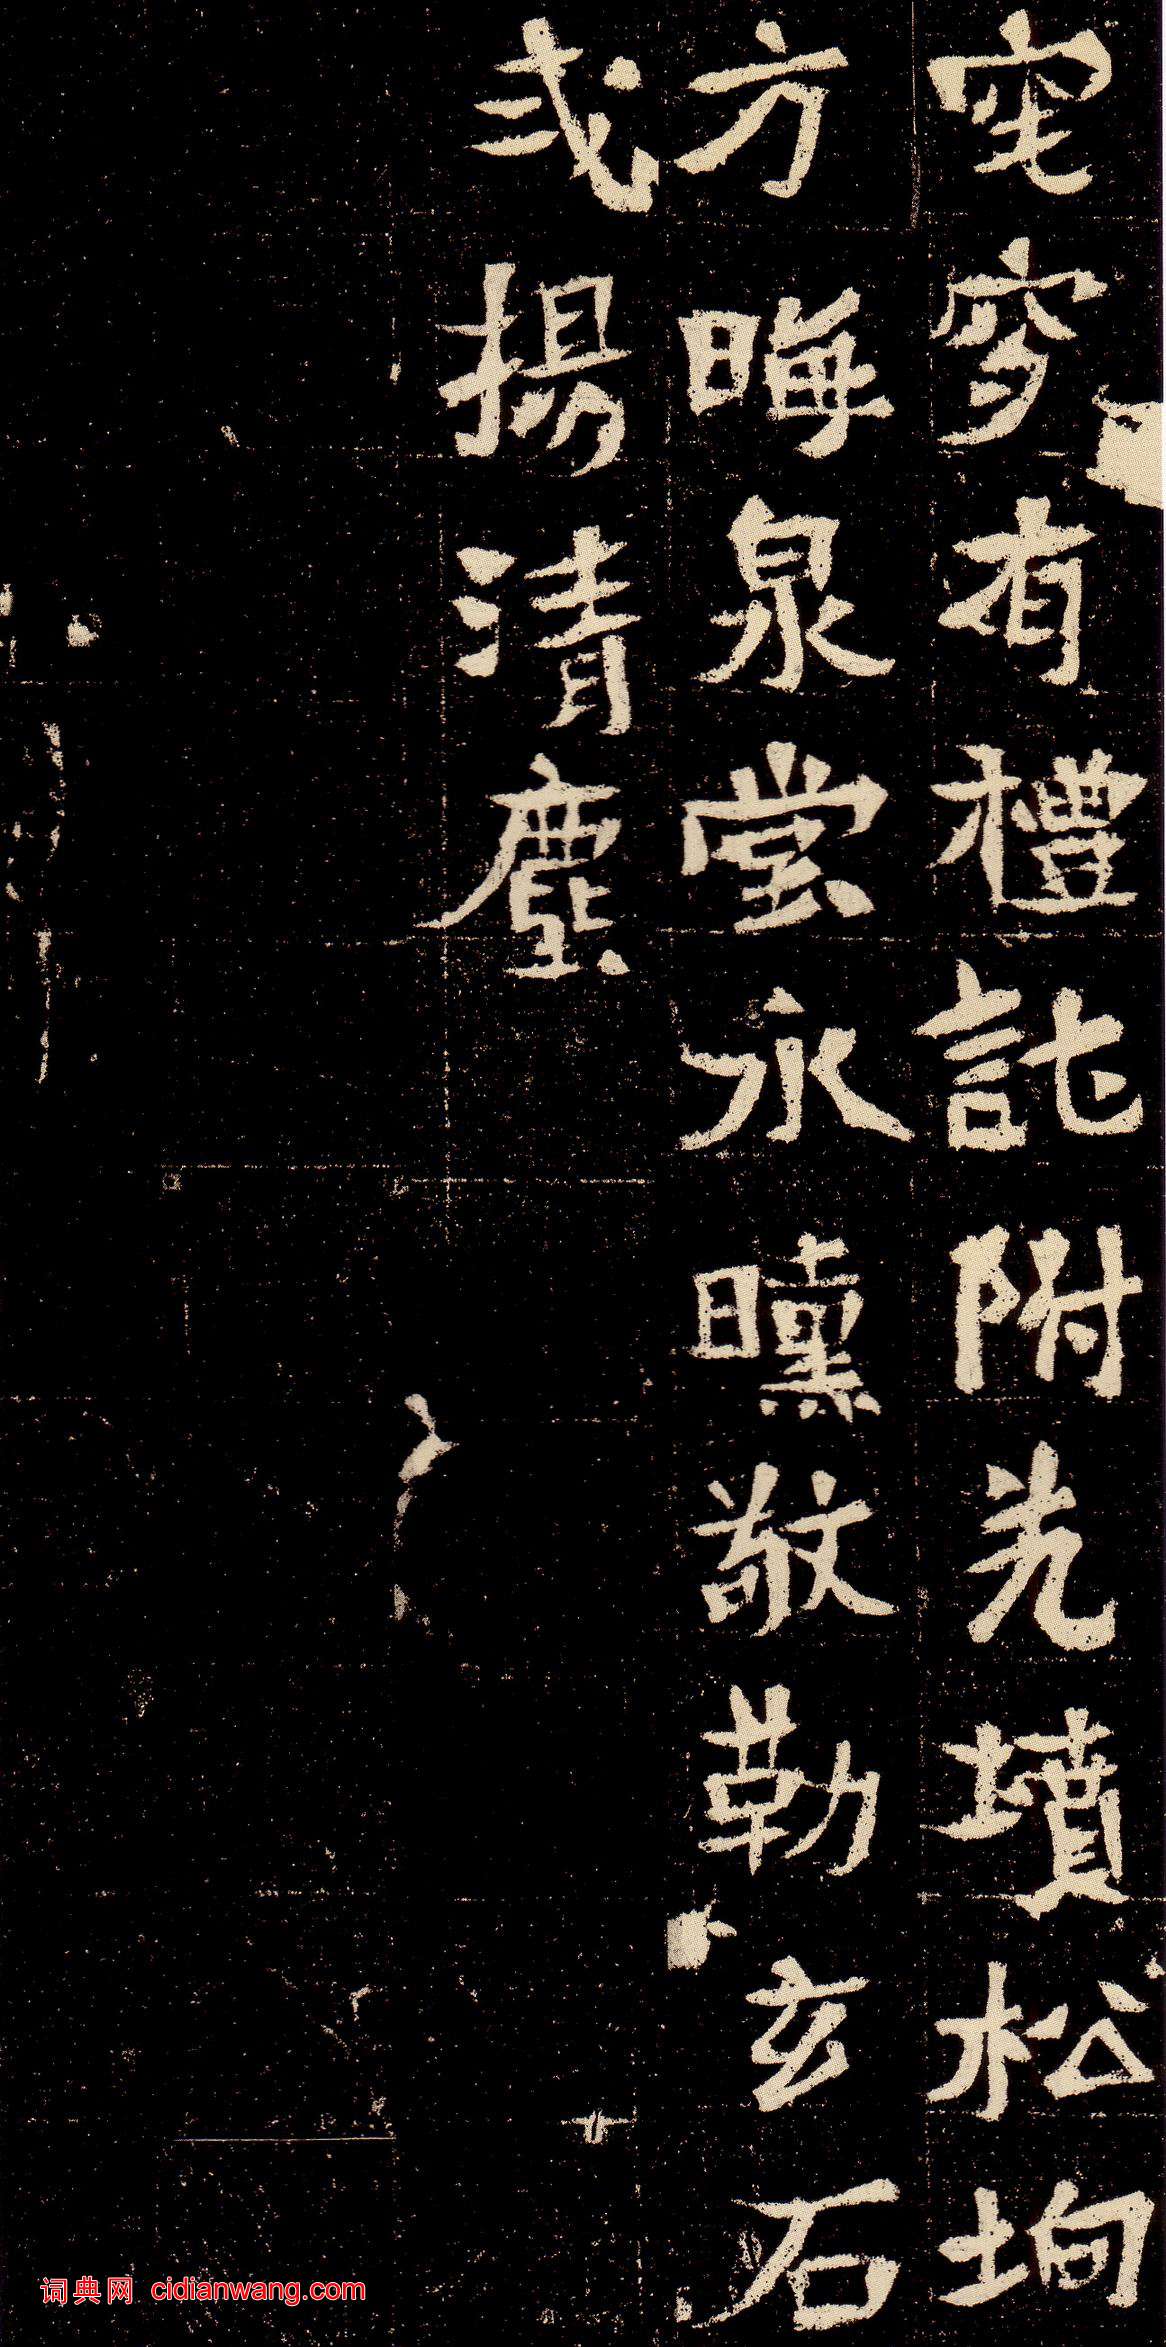 窀穸有禮託附光墳松坰
方晦泉堂永曛敬勒玄石
式揚清塵
词典网 cidianwang.com